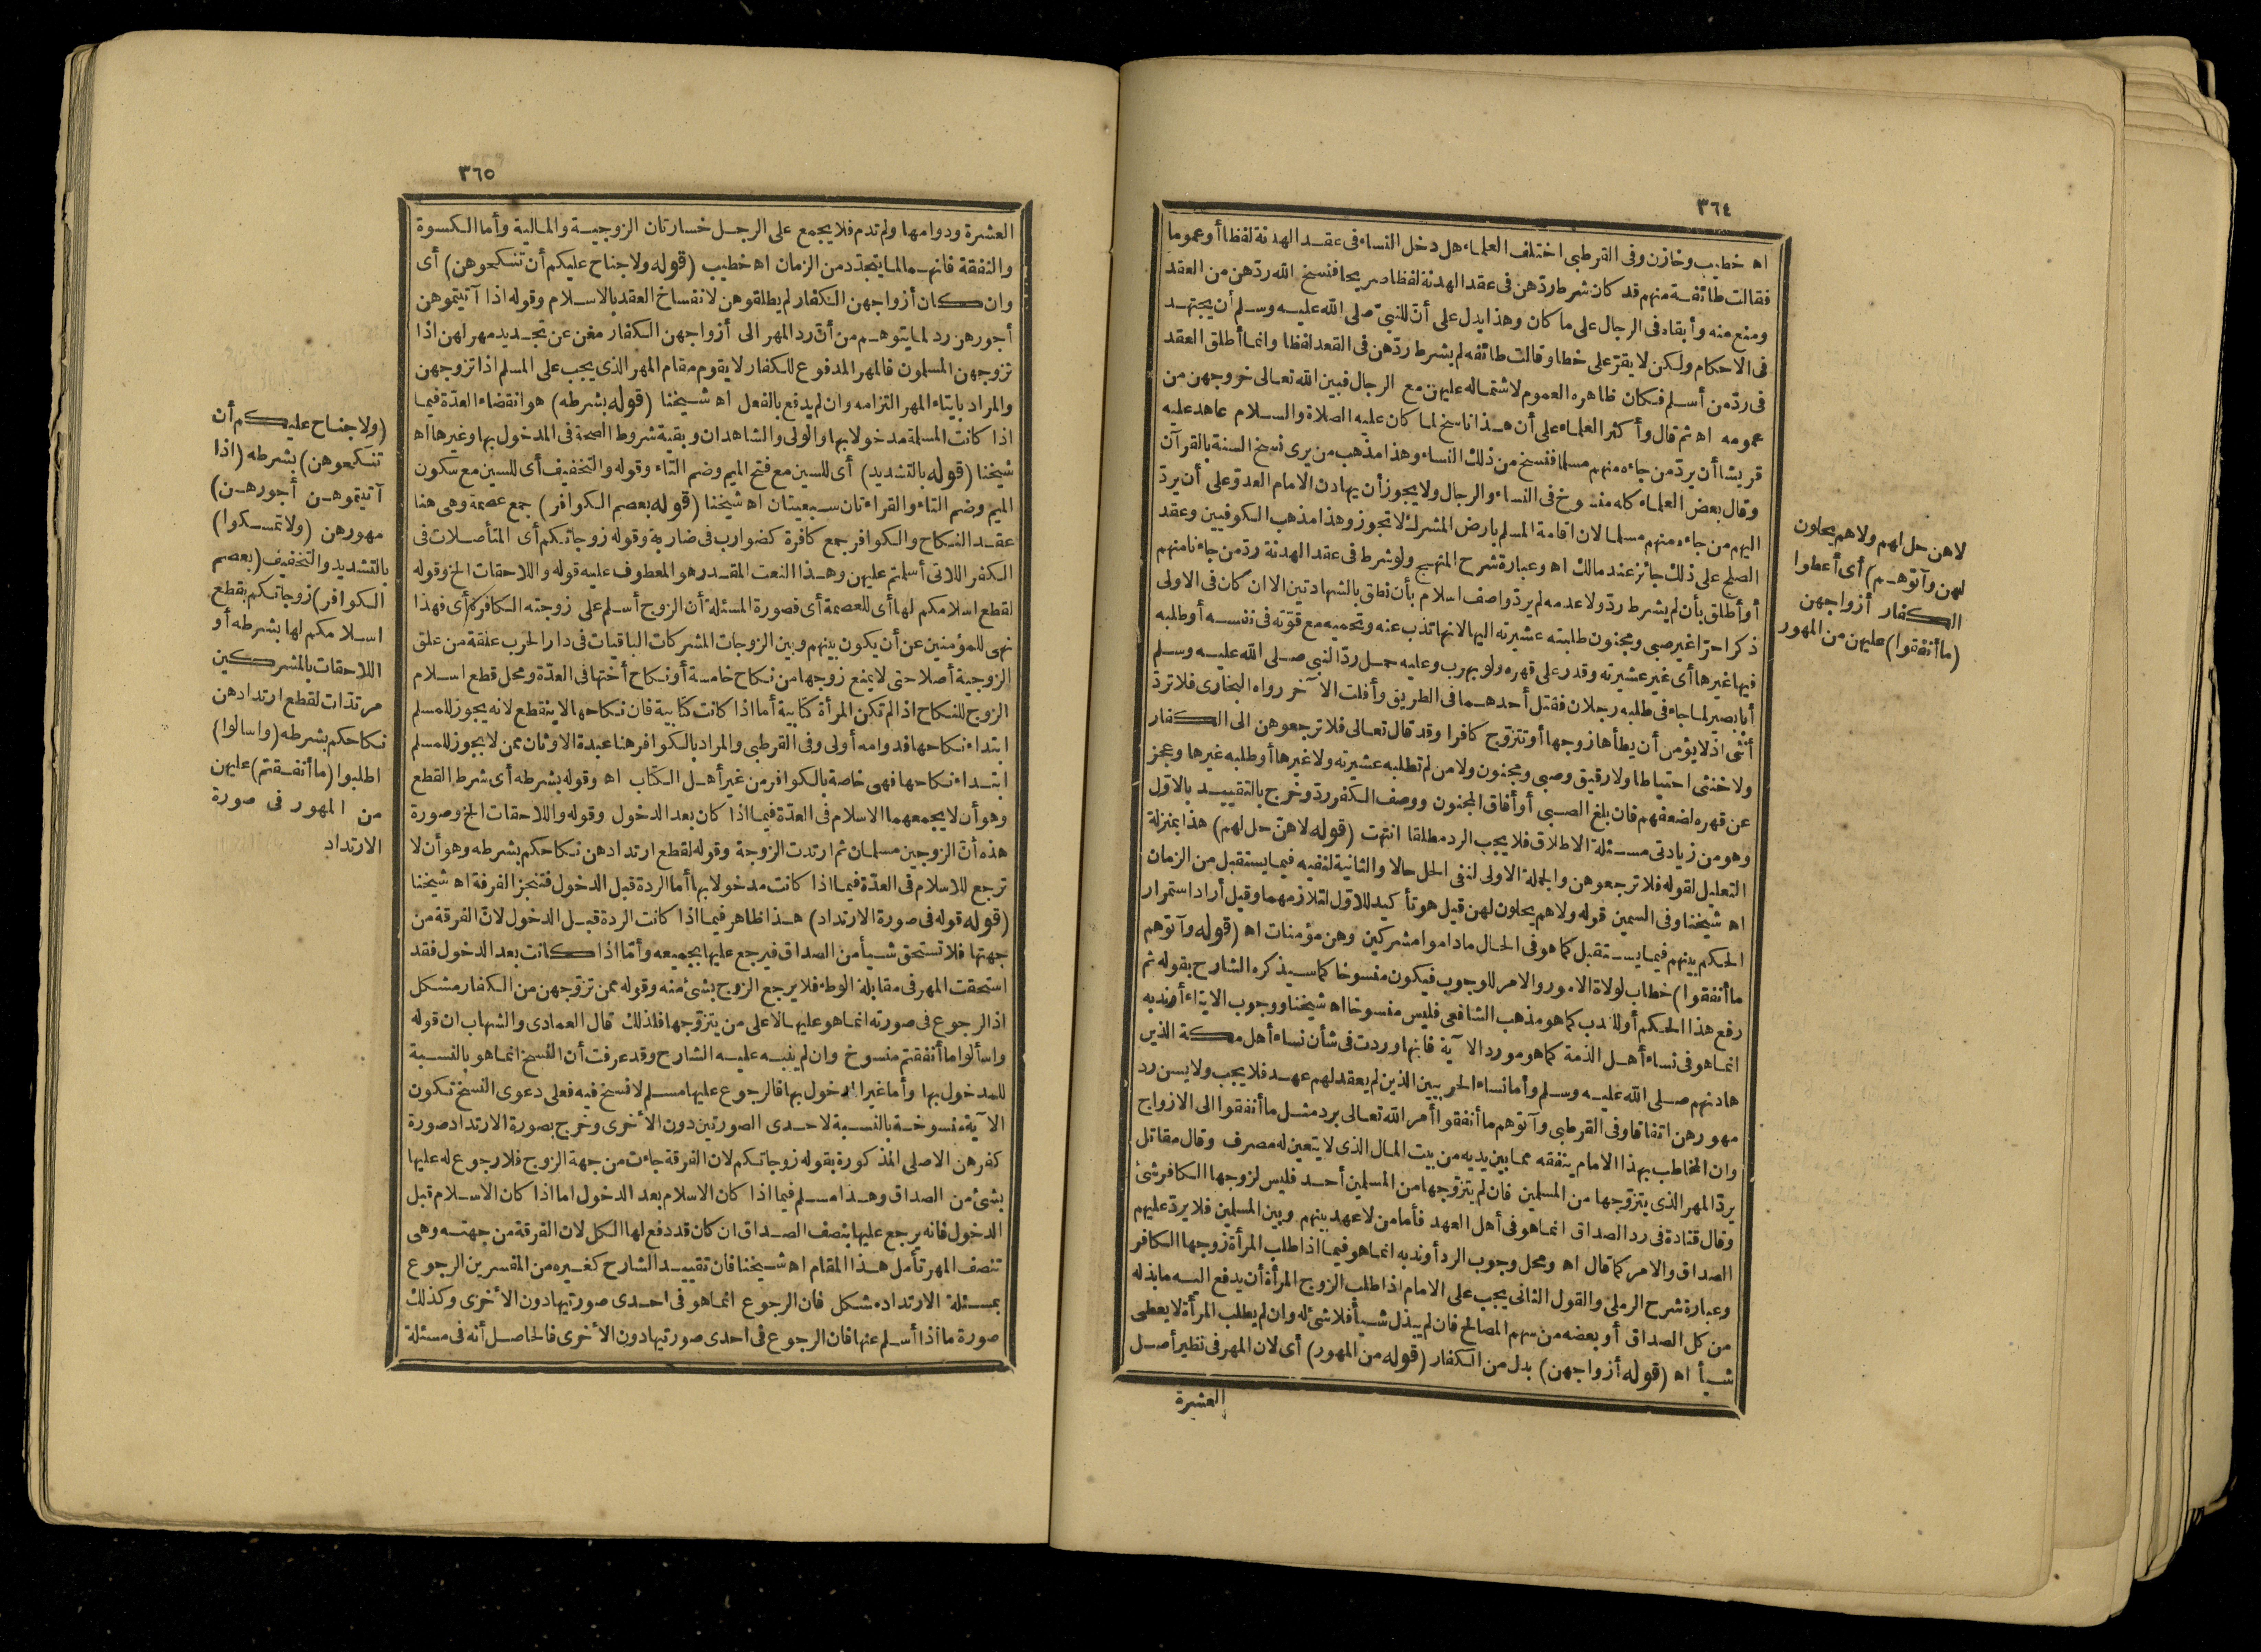 ٣٦٤
اه خطيب وخازن وفى القرطبى اختلف العلماء هل دخل النساء فى عقد الهدنة لفظا أو عموما
فقالت طائفة منهم قد كان شرط ردّهن فى عقد الهدنة لفظا صريحا فنسخ الله ردّهن من العقد
ومنع منه وأبقاه فى الرجال على ما كان وهذا يدل على أنّ للنبىّ صلى الله عليه وسلم أن يجتهد
فى الاحكام ولكن لا يقرّ على خطا وقالت طائفه لم يشرط ردّهن فى القعد لفظا وانما أطلق العقد
فى ردّ من أسلم فكان ظاهره العموم لاشتماله عليهن مع الرجال فبين الله تعالى خروجهن من
عمومه اه ثم قال وأكثر العلماء على أن هذا ناسخ لما كان عليه الصلاة والسلام عاهد عليه
قريشا أن يردّ من جاءه منهم مسلما فنسخ من ذلك النساء وهذا مذهب من يرى نسخ السنة بالقرآن
وقال بعض العلماء كله منسوخ فى النساء والرجال ولا يجوز أن يهادن الامام العدوّ على أن يردّ
اليهم من جاءه منهم مسلما لان اقامة المسلم بارض المشرك لا تجوز وهذا مذهب الكوفيين وعقد
الصلح على ذلك جائز عند مالك اه وعبارة شرح المنهج ولو شرط فى عقد الهدنة ردّ من جاءنا منهم
أو أطلق بأن لم يشرط ردّ ولا عدمه لم يردّ واصف اسلام بأن نطق بالشهادتين الا ان كان فى الاولى
ذكرا حرّا غير صبى ومجنون طلبته عشيرته اليها لانها تذب عنه وتحميه مع قوّته فى نفسه أو طلبه
فيها غيرها أى غير عشيرته وقدر على قهره ولو بهرب وعليه حمل ردّ النبى صلى الله عليه وسلم
أبا بصير لما جاء فى طلبه رجلان فقتل أحدهما فى الطريق وأفلت الآخر رواه البخارى فلا تردّ
أنثى اذ لا يؤمن أن يطأها زوجها أو تتزوج كافرا وقد قال تعالى فلا ترجعوهن الى الكفار
ولا خنثى احتياطا ولا رقيق وصبى ومجنون ولا من لم تطلبه عشيرته ولا غيرها أو طلبه غيرها وعجز
عن قهره لضعفهم فان بلغ الصبى أو أفاق المجنون ووصف الكفر ردّ وخرج بالتقييد بالاوّل
وهو من زيادتى مسئلة الاطلاق فلا يجب الرد مطلقا انتهت (قوله لا هنّ حل لهم) هذا بمنزلة
التعليل لقوله فلا ترجعوهن والجملة الاولى لنفى الحل حالا والثانية لنفيه فيما يستقبل من الزمان
اه شيخنا وفى السمين قوله ولا هم يحلون لهن قيل هو تأكيد للاوّل لتلازمهما وقيل أراد استمرار
الحكم بينهم فيما يستقبل كما هو فى الحال ما داموا مشركين وهن مؤمنات اه (قوله وآتوهم
ما أنفقوا) خطاب لولاة الامور والامر للوجوب فيكون منسوخا كما سيذكره الشارح بقوله ثم
رفع هذا الحكم أو للندب كما هو مذهب الشافعى فليس منسوخا اه شيخنا ووجوب الايتاء أو ندبه
انما هو فى نساء أهل الذمة كما هو مورد الآية فانها وردت فى شأن نساء أهل مكة الذين
هادنهم صلى الله عليه وسلم وأما نساء الحربيين الذين لم يعقد لهم عهد فلا يجب ولا يسن رد
مهورهن اتفاقا وفى القرطبى وآتوهم ما أنفقوا أمر الله تعالى برد مثل ما أنفقوا الى الازواج
وان المخاطب بهذا الامام ينفقه مما بين يديه من بيت المال الذى لا يتعين له مصرف وقال مقاتل
يردّ المهر الذى يتزوّجها من المسلمين فان لم يتزوّجها من المسلمين أحد فليس لزوجها الكافر شئ
وقال قتادة فى رد الصداق انما هو فى أهل العهد فأما من لا عهد بينهم وبين المسلمين فلا يردّ عليهم
الصداق والامر كما قال اه ومحل وجوب الرد أو ندبه انما هو فيما اذا طلب المرأة زوجها الكافر
وعبارة شرح الرملى والقول الثانى يجب على الامام اذا طلب الزوج المرأة أن يدفع اليه ما بذله
من كل الصداق أو بعضه من سهم المصالح فان لم يبذل شيأ فلا شئ له وان لم يطلب المرأة لا يعطى
شيأ اه (قوله أزواجهن) بدل من الكفار (قوله من المهور) أى لان المهر فى نظير أصل
العشرة
لا هن حل لهم ولا هم يحلون
لهن وآتوهم) أى أعطوا
الكفار أزواجهن
(ما أنفقوا) عليهن من المهور
٣٦٥
العشرة ودوامها ولم تدم فلا يجمع على الرجل خسارتان الزوجية والمالية وأما الكسوة
والنفقة فانهما لما يتجدّد من الزمان اه خطيب (قوله ولا جناح عليكم أن تنكحوهن) أى
وان كان أزواجهن الكفار لم يطلقوهن لانفساخ العقد بالاسلام وقوله اذا آتيتموهن
أجورهن رد لما يتوهم من أنّ رد المهر الى أزواجهن الكفار مغن عن تجديد مهر لهن اذا
تزوجهن المسلمون فالمهر المدفوع للكفار لا يقوم مقام المهر الذى يجب على المسلم اذا تزوجهن
والمراد بايتاء المهر التزامه وان لم يدفع بالفعل اه شيخنا (قوله بشرطه) هو انقضاء العدّة فيما
اذا كانت المسلمة مدخولا بها والولى والشاهدان وبقية شروط الصحة فى المدخول بها وغيرها اه
شيخنا (قوله بالتشديد) أى للسين مع فتح الميم وضم التاء وقوله والتخفيف أى للسين مع سكون
الميم وضم التاء والقراءتان سبعيتان اه شيخنا (قوله بعصم الكوافر) جمع عصمة وهى هنا
عقد النكاح والكوافر جمع كافرة كضوارب فى ضاربة وقوله زوجاتكم أى المتأصلات فى
الكفر اللاتى أسلمتم عليهن وهذا النعت المقدر هو المعطوف عليه قوله واللاحقات الخ وقوله
لقطع اسلامكم لها أى للعصمة أى فصورة المسئلة أن الزوج أسلم على زوجته الكافرة أى فهذا
نهى للمؤمنين عن أن يكون بينهم وبين الزوجات المشركات الباقيات فى دار الحرب علقة من علق
الزوجية أصلا حتى لا يمنع زوجها من نكاح خامسة أو نكاح أختها فى العدّة ومحل قطع اسلام
الزوج للنكاح اذا لم تكن المرأة كتابية أما اذا كانت كتابية فان نكاحها لا ينقطع لانه يجوز للمسلم
ابتداء نكاحها فدوامه أولى وفى القرطبى والمراد بالكوافر هنا عبدة الاوثان ممن لا يجوز للمسلم
ابتداء نكاحها فهى خاصة بالكوافر من غير أهل الكتاب اه وقوله بشرطه أى شرط القطع
وهو أن لا يجمعهما الاسلام فى العدّة فيما اذا كان بعد الدخول وقوله واللاحقات الخ وصورة
هذه أنّ الزوجين مسلمان ثم ارتدت الزوجة وقوله لقطع ارتدادهن نكاحكم بشرطه وهو أن لا
ترجع للاسلام فى العدّة فيما اذا كانت مدخولا بها أما الردة قبل الدخول فتنجز الفرقة اه شيخنا
(قوله قوله فى صورة الارتداد) هذا ظاهر فيما اذا كانت الردة قبل الدخول لانّ الفرقة من
جهتها فلا تستحق شيأ من الصداق فيرجع عليها بجميعه وأمّا اذا كانت بعد الدخول فقد
استحقت المهر فى مقابلة الوطء فلا يرجع الزوج بشئ منه وقوله ممن تزوّجهن من الكفار مشكل
اذ الرجوع فى صورته انما هو عليها لا على من يتزوّجها فلذلك قال العمادى والشهاب ان قوله
واسألوا ما أنفقتم منسوخ وان لم ينبه عليه الشارح وقد عرفت أن النسخ انما هو بالنسبة
للمدخول بها وأما غير المدخول بها فالرجوع عليها مسلم لا نسخ فيه فعلى دعوى النسخ تكون
الآية منسوخة بالنسبة لاحدى الصورتين دون الأخرى وخرج بصورة الارتداد صورة
كفرهن الاصلى المذكورة بقوله زوجاتكم لان الفرقة جاءت من جهة الزوج فلا رجوع له عليها
بشئ من الصداق وهذا مسلم فيما اذا كان الاسلام بعد الدخول اما اذا كان الاسلام قبل
الدخول فانه يرجع عليها بنصف الصداق ان كان قد دفع لها الكل لان الفرقة من جهته وهى
تنصف المهر تأمل هذا المقام اه شيخنا فان تقييد الشارح كغيره من المفسرين الرجوع
بمسئلة الارتداد مشكل فان الرجوع انما هو فى احدى صورتيها دون الأخرى وكذلك
صورة ما اذا أسلم عنها فان الرجوع فى احدى صورتيها دون الأخرى فالحاصل أنه فى مسئلة
(ولا جناح عليكم أن
تنكحوهن) بشرطه (اذا
آتيتموهن أجورهن)
مهورهن (ولا تمسكوا)
بالتشديد والتخفيف (بعصم
الكوافر) زوجاتكم بقطع
اسلامكم لها بشرطه أو
اللاحقات بالمشركين
مرتدّات لقطع ارتدادهن
نكاحكم بشرطه (واسالوا)
اطلبوا (ما أنفقتم) عليهن
من المهور فى صورة
الارتداد